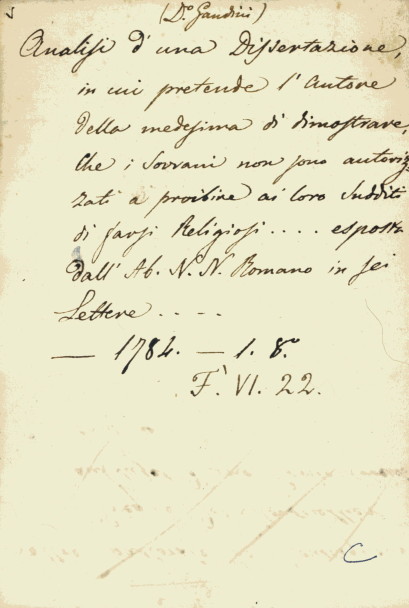 (D.° Gandini)
Analisi d'una Dissertazione,
in cui pretende l'Autore
della medesima di dimostrare,
che i Sovrani non sono autoriz=
zati a proibire ai loro Sudditi
di farsi Religiosi .... esposta
dall'Ab. N. N. Romano in sei
Lettere ....
— 1784. — 1. 8.°
F. VI. 22.
C